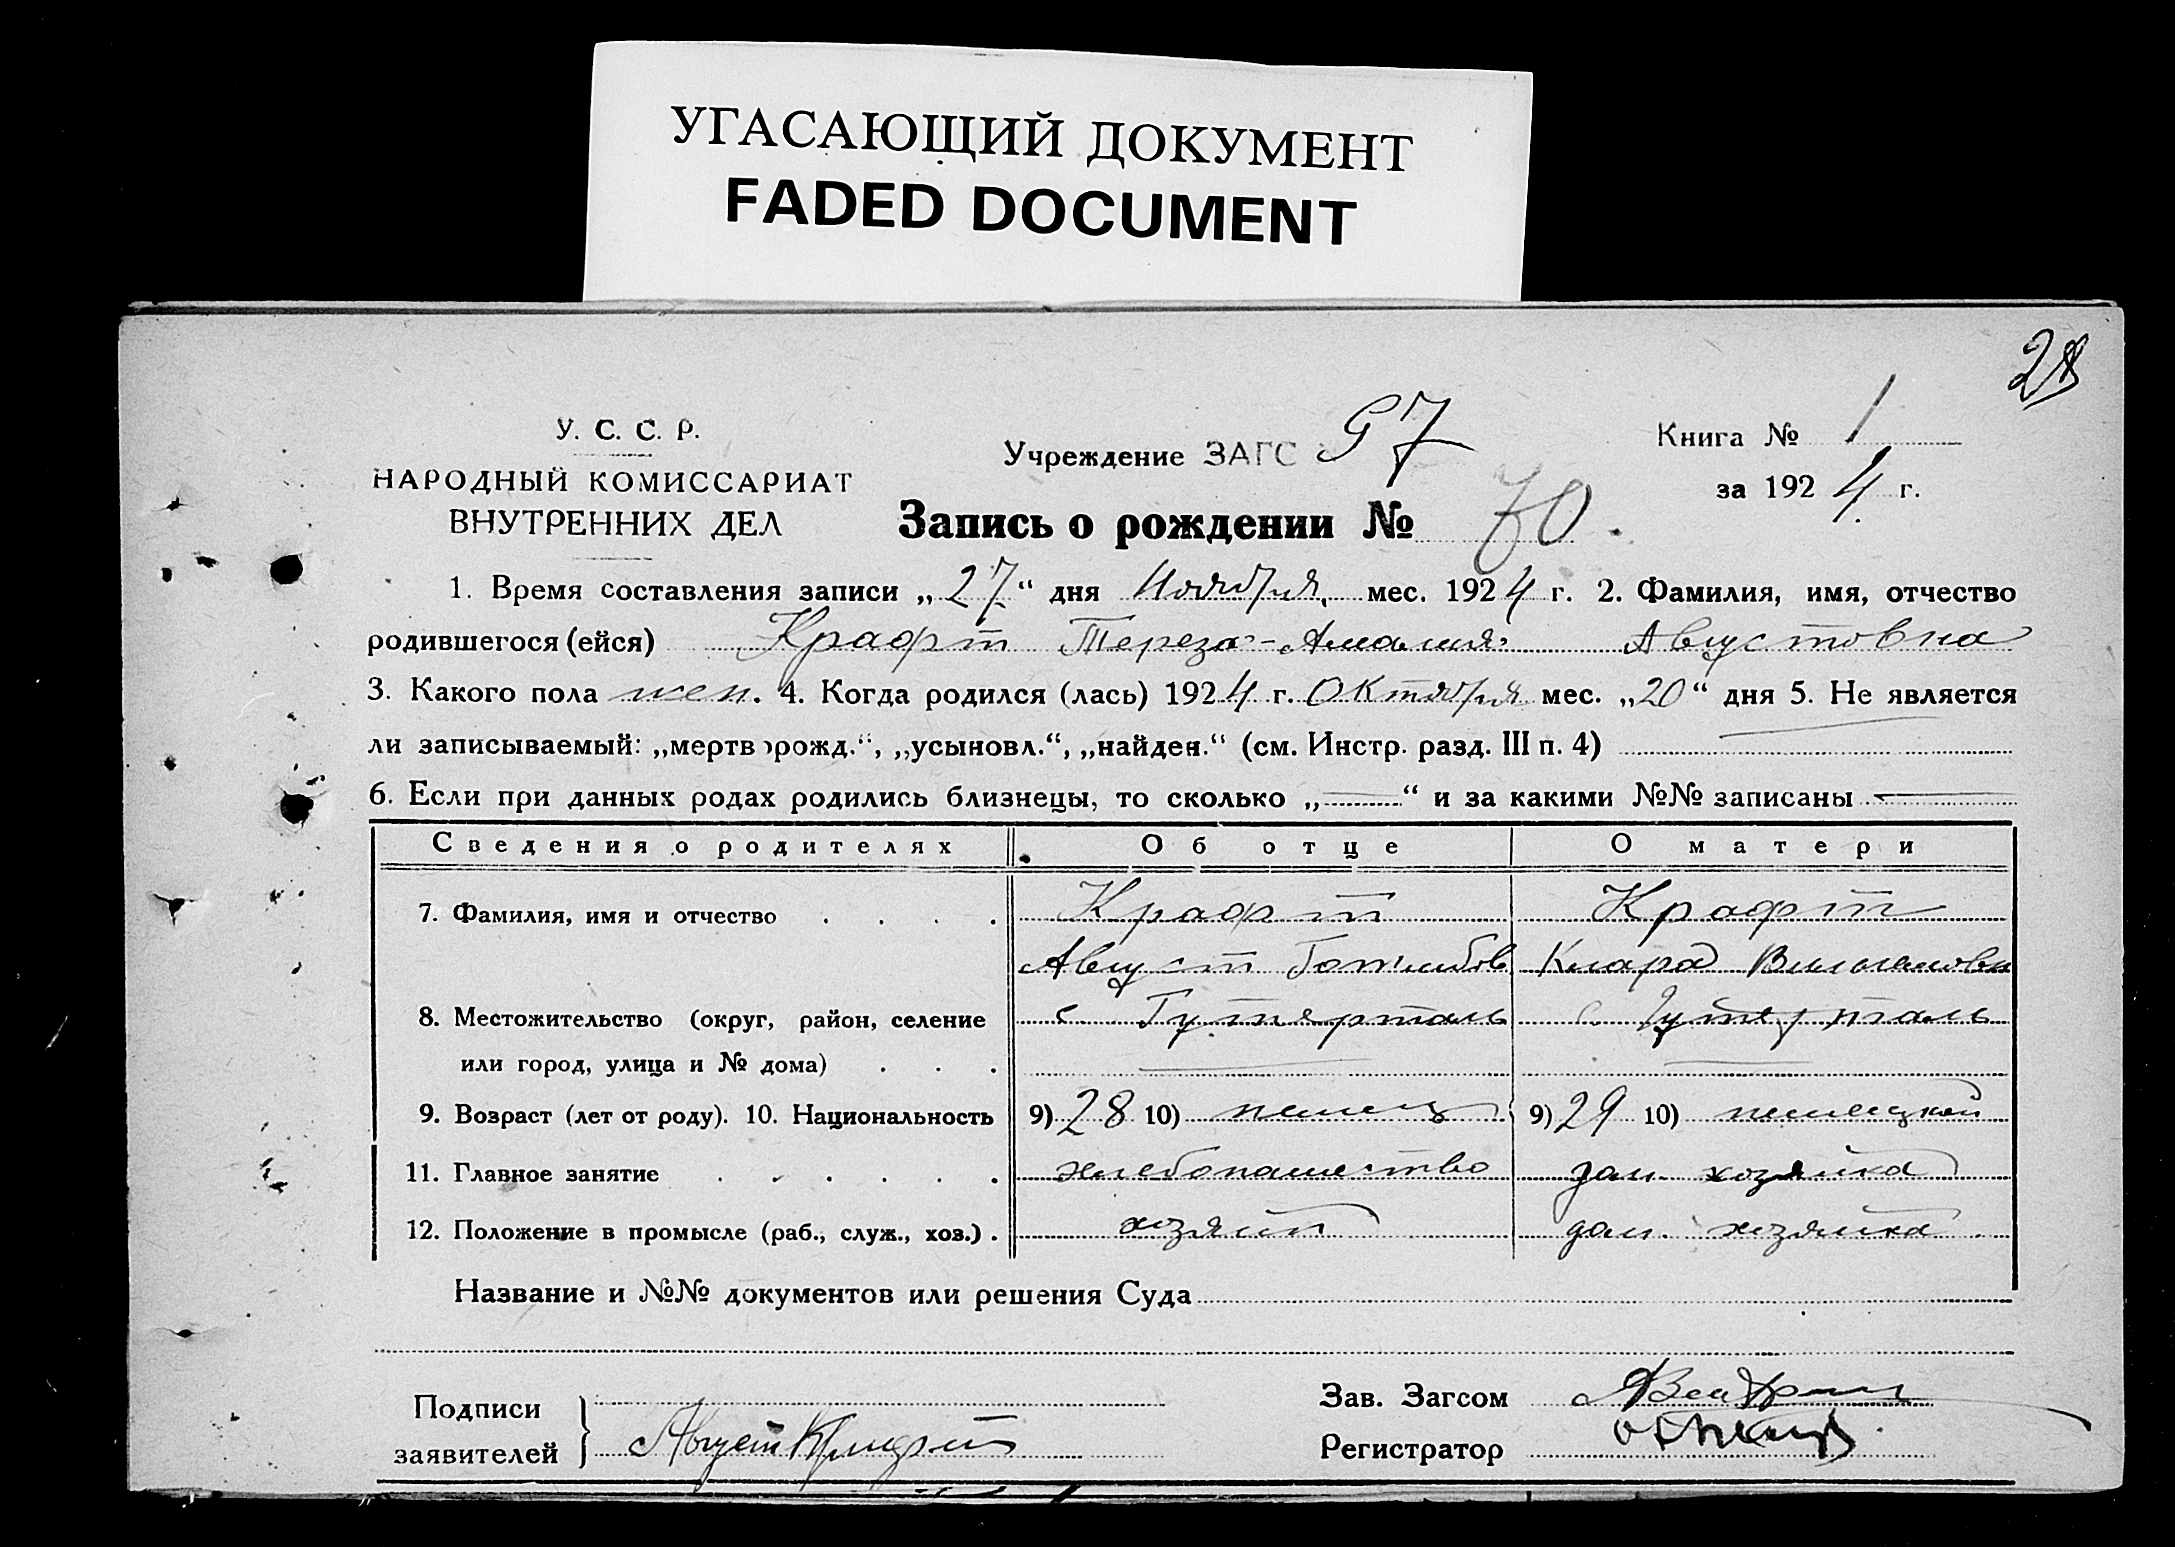 УГАСАЮЩИЙ ДОКУМЕНТ
FADED DOCUMENT
28
У. С. С. Р.
НАРОДНЫЙ КОМИССАРИАТ
ВНУТРЕННИХ ДЕЛ
Учреждение ЗАГС 97
Книга № 1
за 1924 г.
Запись о рождении № 70.
1. Время составления записи „27“ дня Ноября мес. 1924 г. 2. Фамилия, имя, отчество
родившегося (ейся) Крафт Тереза-Амалия Августовна
3. Какого пола жен. 4. Когда родился (лась) 1924 г. Октября мес. „20“ дня 5. Не является
ли записываемый: „мерт­ворожд.“, „усыновл.“, „найден.“ (см. Инстр. разд. III п. 4)
6. Если при данных родах родились близнецы, то сколько „—“ и за какими №№ записаны —
Сведения о родителях Об отце О матери
7. Фамилия, имя и отчество . . . . Крафт Крафт
Август Готлибов Клара Вильгельмовн
8. Местожительство (округ, район, селение с. Гутерталь с. Гутерталь
или город, улица и № дома) . . . — —
9. Возраст (лет от роду). 10. Национальность 9) 28 10) немец 9) 29 10) немецкой
11. Главное занятие . . . . . . хлебопашество дом. хозяйка
12. Положение в промысле (раб., служ., хоз.) . хозяин дом. хозяйка
Название и №№ документов или решения Суда
Подписи
заявителей } Август Крафт
Зав. Загсом
Регистратор